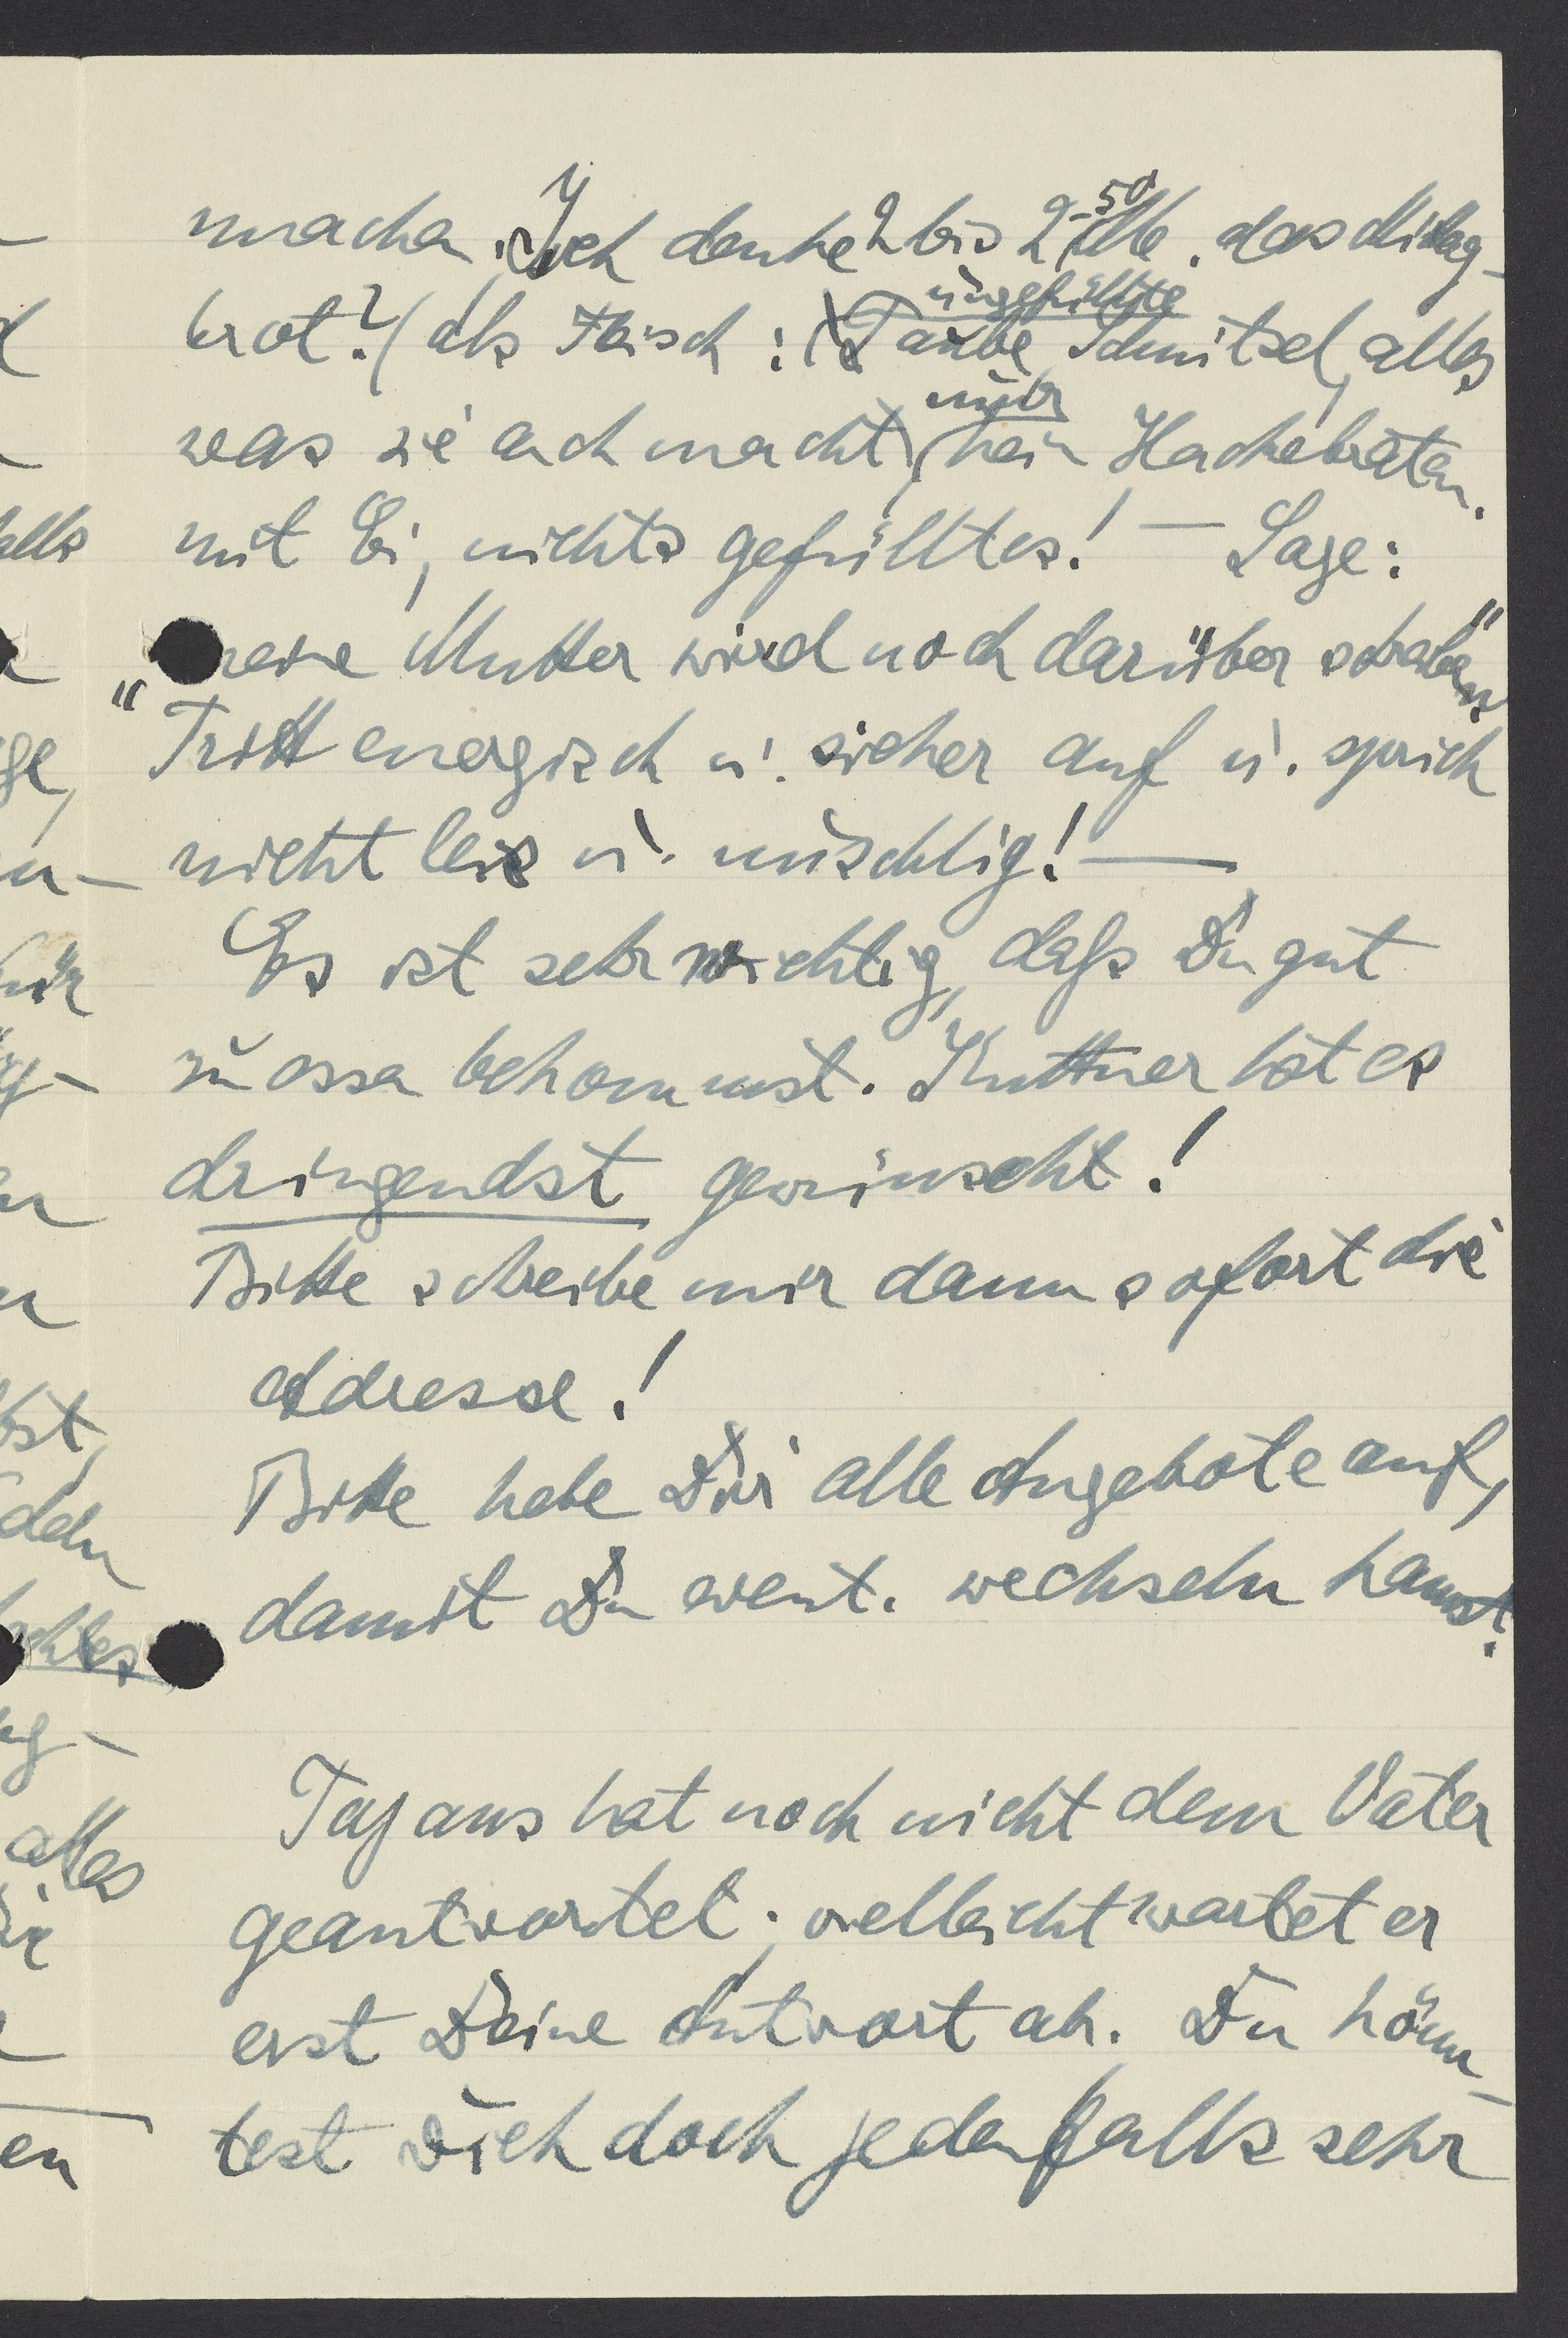 machen. Ich denke 2 bis 2,50 Mk. das Mittag-
brot? (als Fleisch: (Taube, ungefüllte Schnitzel, alles
was sie auch macht), nur kein Hackebraten.
mit Ei, nichts gefülltes! — Sage:
"meine Mutter wird noch darüber schreiben"
Tritt energisch u. sicher auf u. sprich
nicht leis u. nuschlig! —
Es ist sehr wichtig, daß Du gut
zu essen bekommst. Kuttner hat es
dringendst gewünscht!
Bitte schreibe mir dann sofort die
Adresse!
Bitte hebe Dir alle Angebote auf,
damit Du event. wechseln kannst.
hat noch nicht dem Vater
geantwortet; vielleicht wartet er
erst Deine Antwort ab. Du könn-
test Dich doch jedenfalls sehr